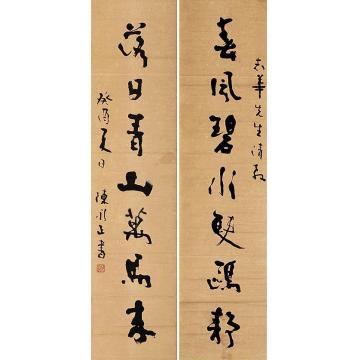 志華先生清教
春風碧水雙鷗靜
落日青山萬馬來
癸酉夏日 陳永正書